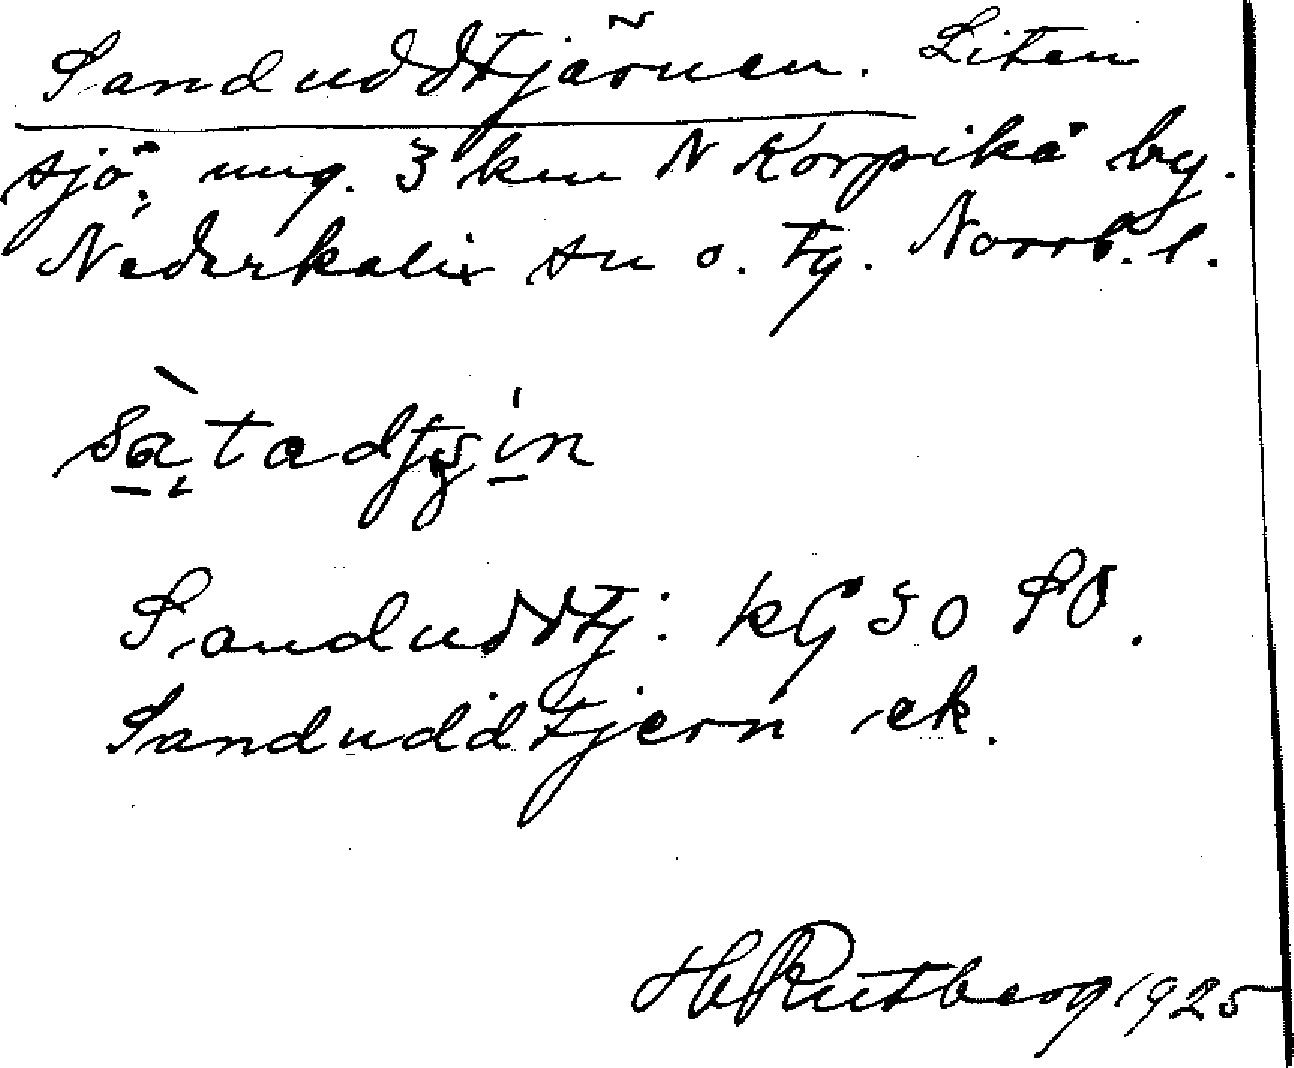 Sanduddtjärnen. Liten
sjö, ung. 3 km N Korpikå by.
Nederkalix sn o. tg. Norrb. l.
Sanduddtj: kG 30 SO.
Sanduddtjern ek.
H Rutberg 1925